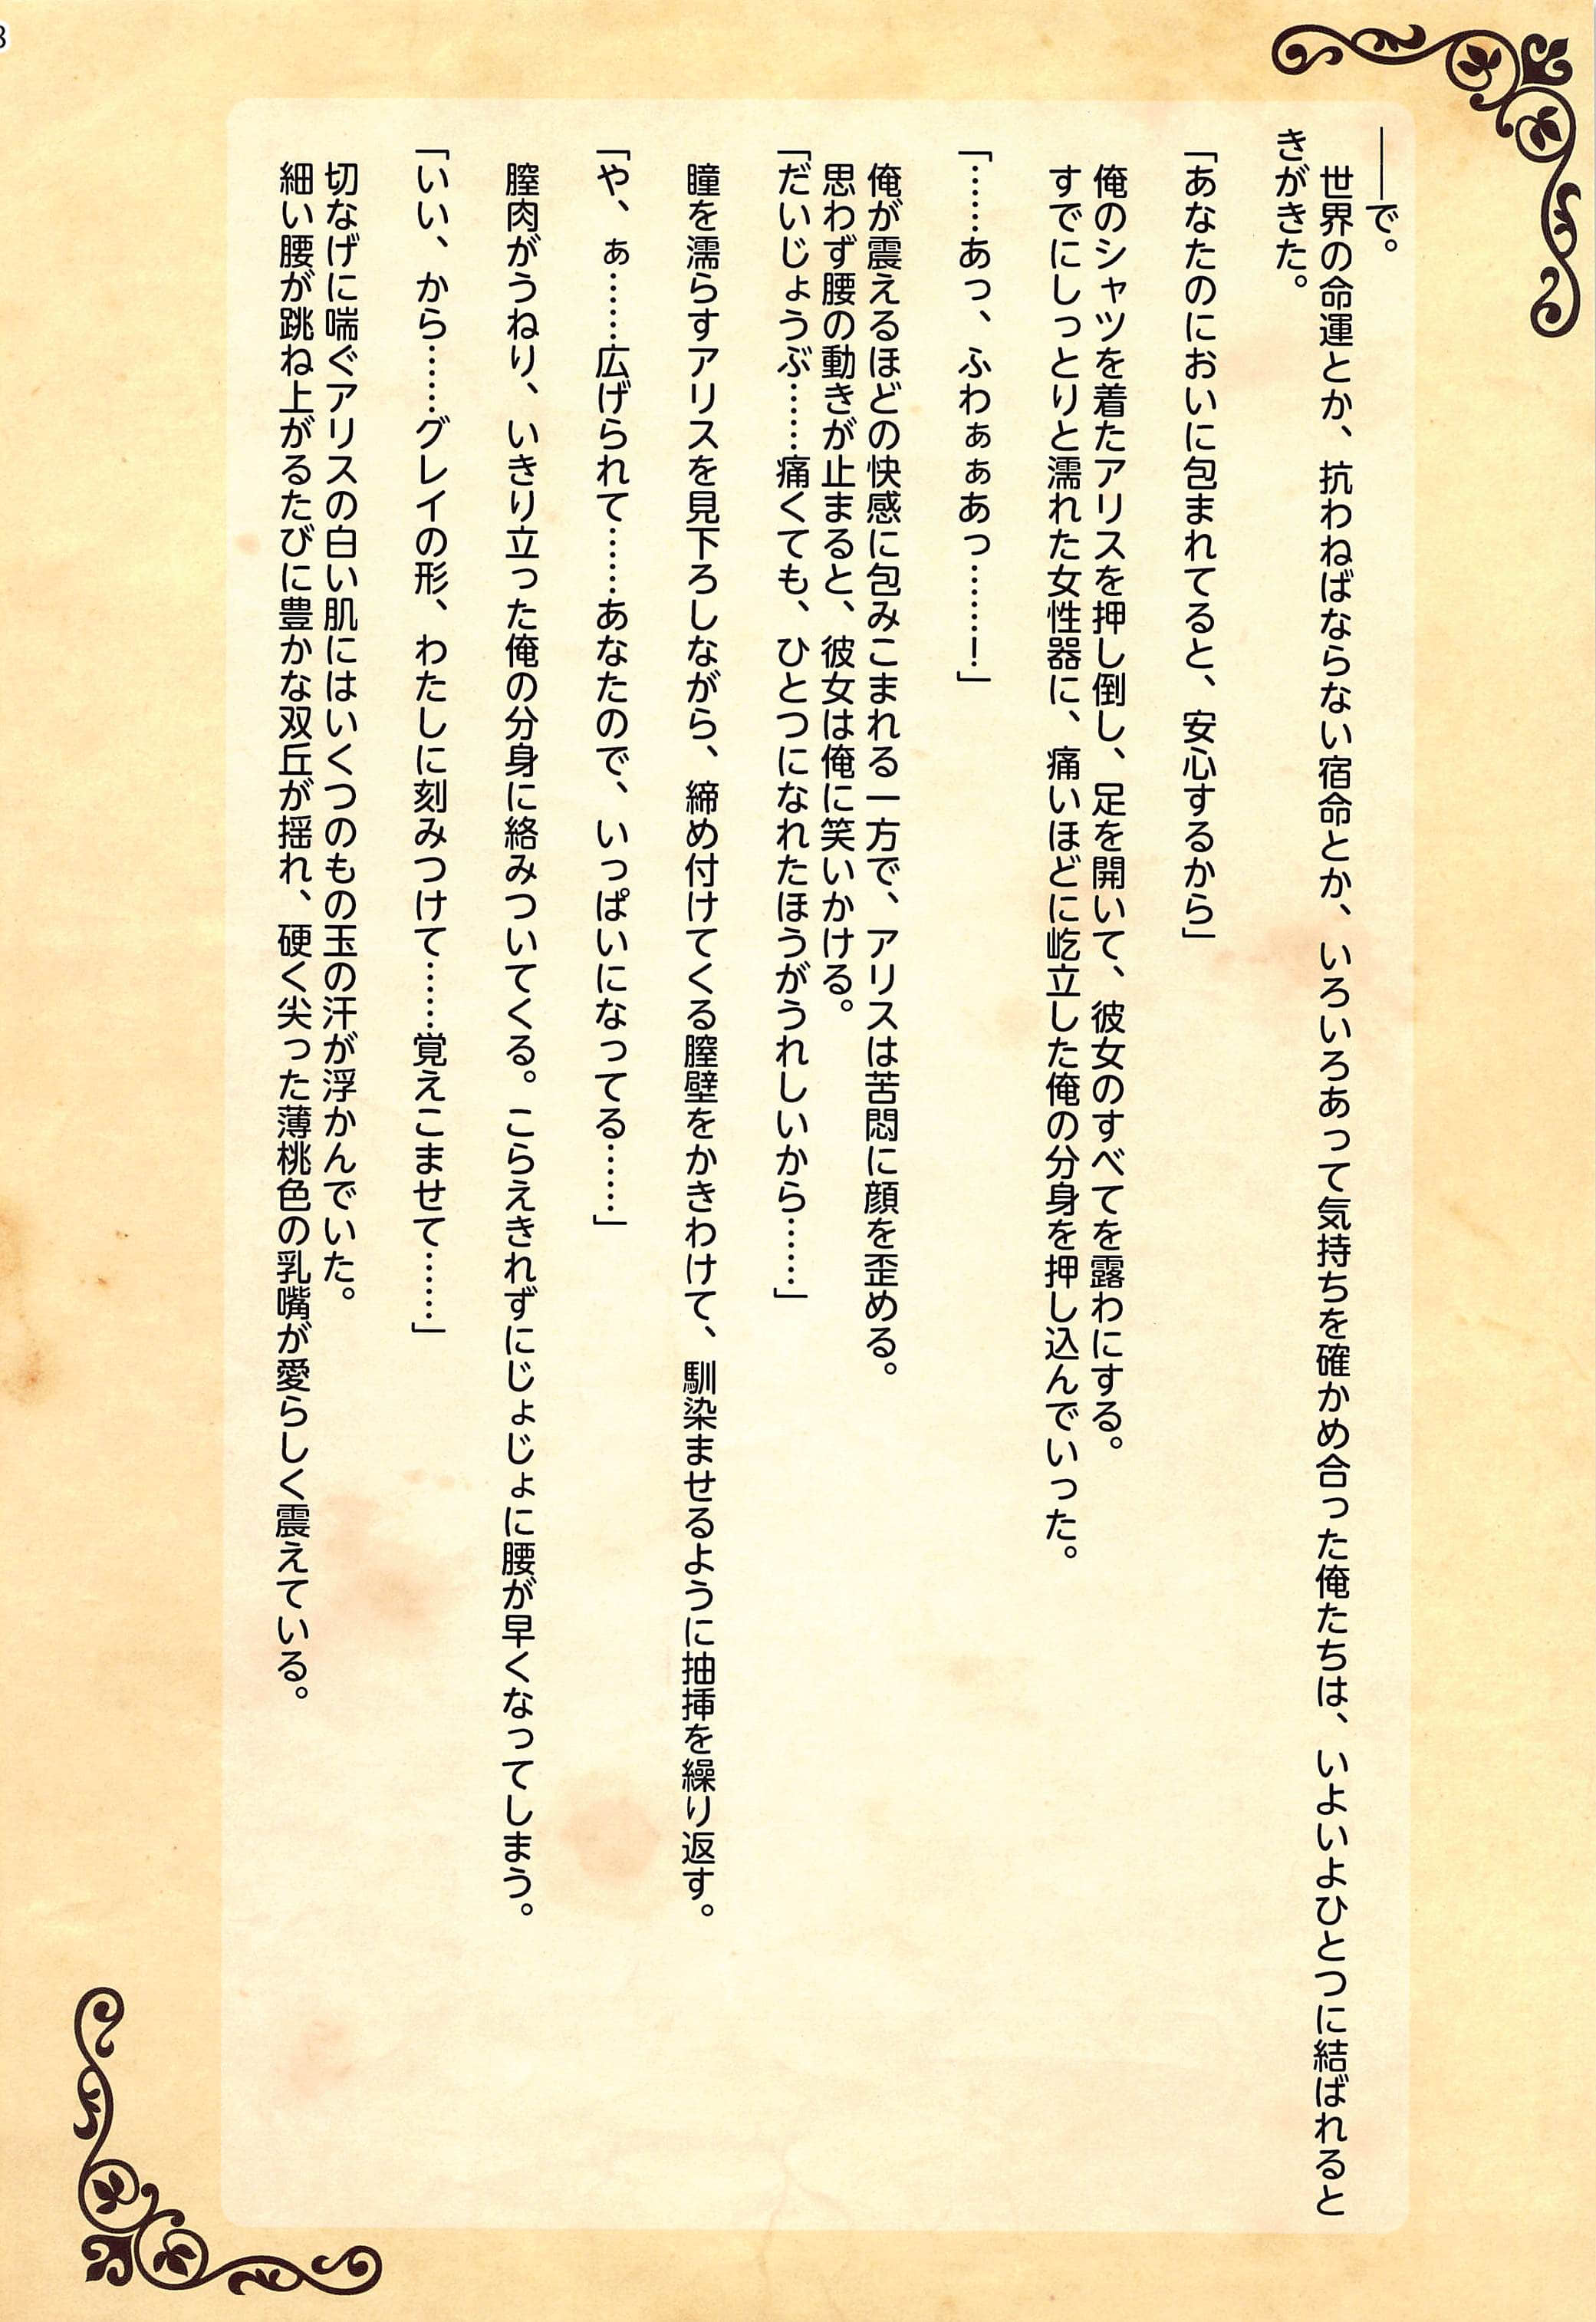 ――で。
世界の命運とか、抗わねばならない宿命とか、いろいろあって気持ちを確かめ合った俺たちは、いよいよひとつに結ばれると
きがきた。
「あなたのにおいに包まれてると、安心するから」
俺のシャツを着たアリスを押し倒し、足を開いて、彼女のすべてを露わにする。
すでにしっとりと濡れた女性器に、痛いほどに屹立した俺の分身を押し込んでいった。
「……あっ、ふわぁぁあっ……！」
俺が震えるほどの快感に包みこまれる一方で、アリスは苦悶に顔を歪める。
思わず腰の動きが止まると、彼女は俺に笑いかける。
「だいじょうぶ……痛くても、ひとつになれたほうがうれしいから……」
瞳を濡らすアリスを見下ろしながら、締め付けてくる膣壁をかきわけて、馴染ませるように抽挿を繰り返す。
「や、ぁ……広げられて……あなたので、いっぱいになってる……」
膣肉がうねり、いきり立った俺の分身に絡みついてくる。こらえきれずにじょじょに腰が早くなってしまう。
「いい、から……グレイの形、わたしに刻みつけて……覚えこませて……」
切なげに喘ぐアリスの白い肌にはいくつのもの玉の汗が浮かんでいた。
細い腰が跳ね上がるたびに豊かな双丘が揺れ、硬く尖った薄桃色の乳嘴が愛らしく震えている。